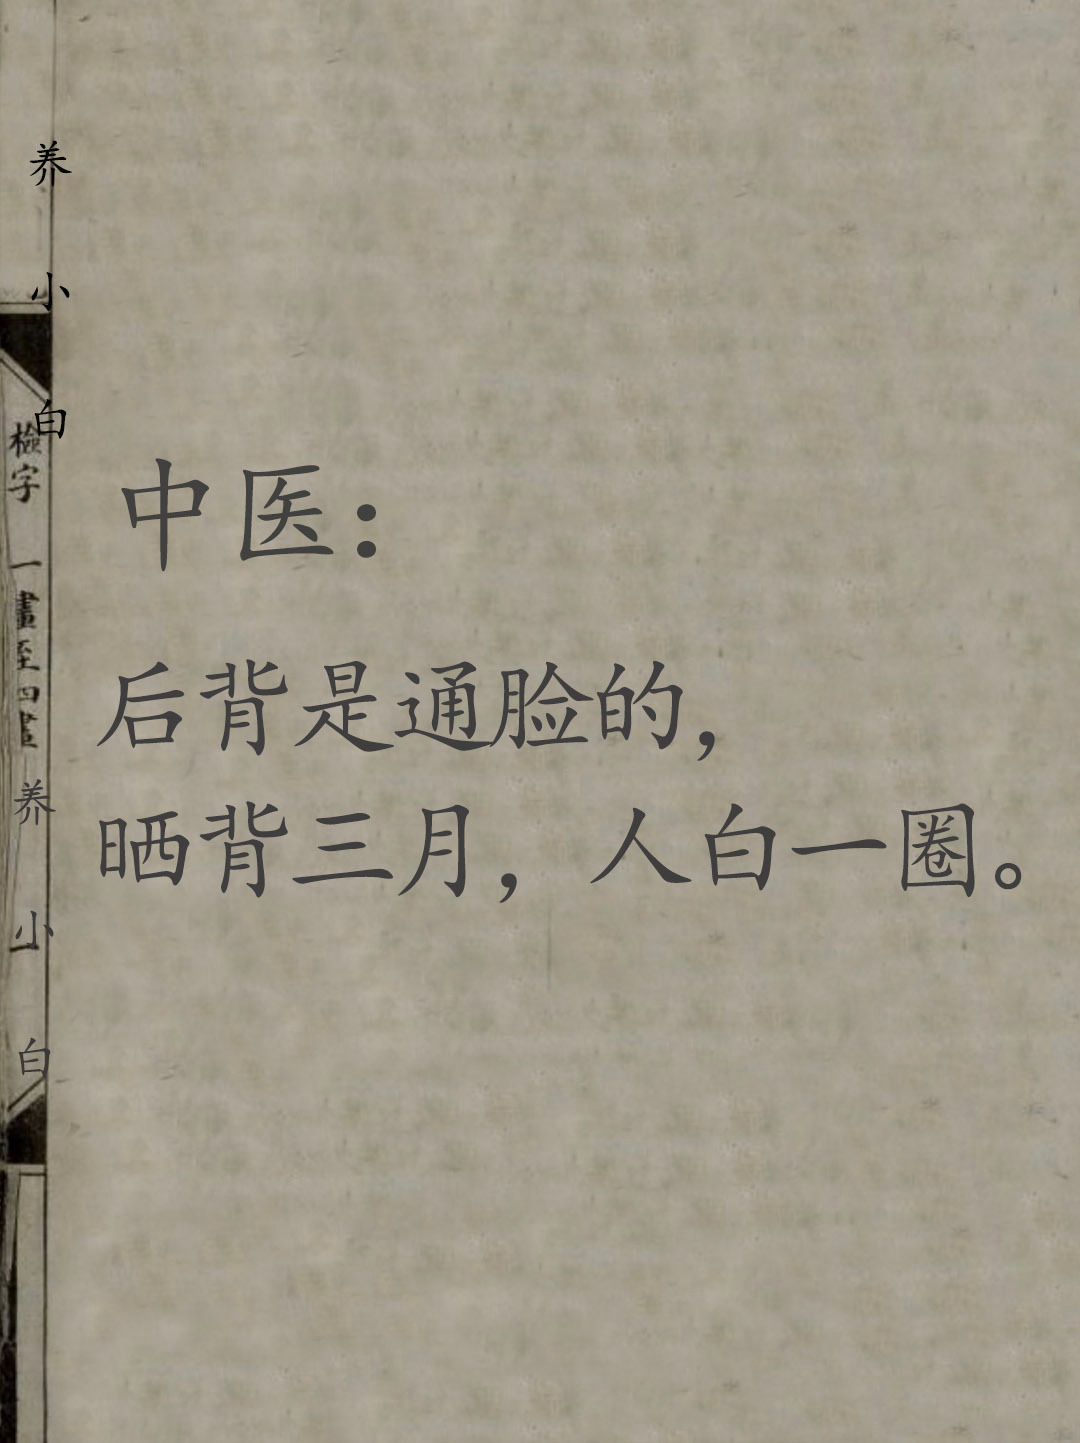 养小白
檢字 一畫至四畫
养小白
中医：
后背是通脸的，
晒背三月，人白一圈。